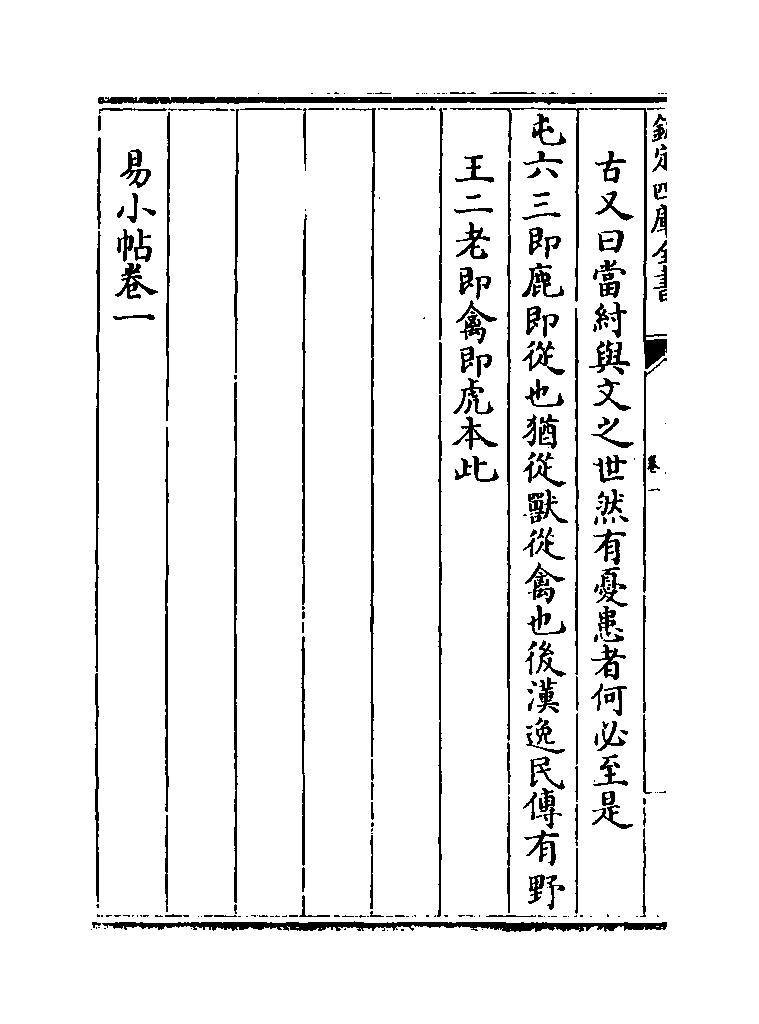 欽定四庫全書
卷一
古又曰當紂與文之世然有憂患者何必至是
屯六三即鹿即從也猶從獸從禽也後漢逸民傳有野
王二老即禽即虎本此
易小帖卷一